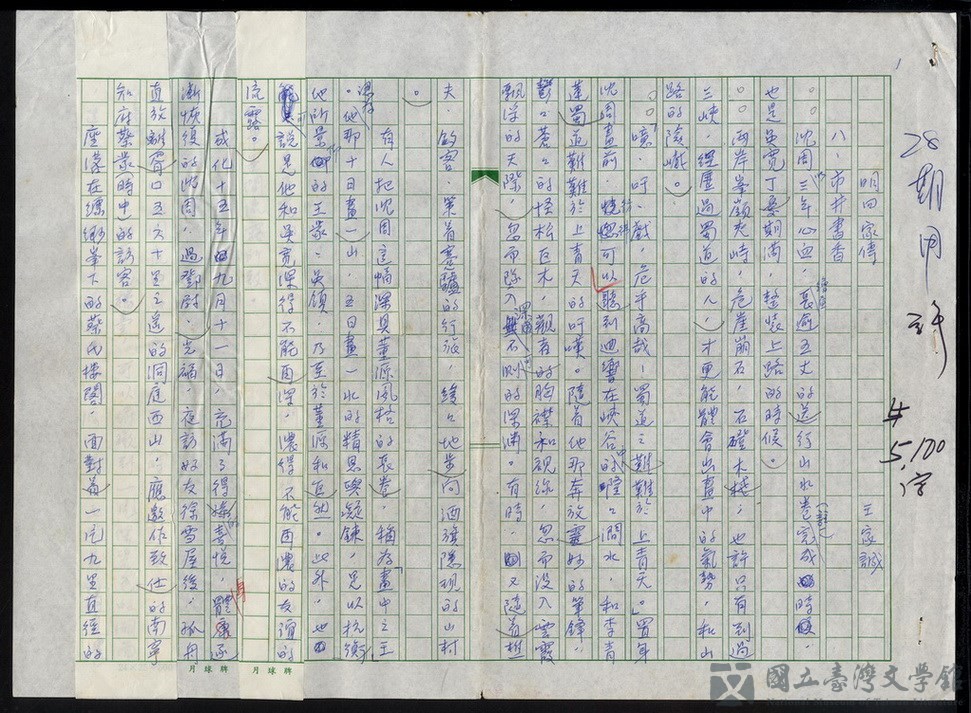 28期用 計 共5,100字
1
明四家傳 王家誠
八、市井書香
沈周三年心血,長逾五丈的送行山水卷完成時,
也是吳寬丁憂期滿,整裝上路的時候。
兩岸峯巔夾峙,危崖崩石,石磴木棧;也許只有到過
三峽,經歷過蜀道的人,才更能體會出畫中的氣勢,和山
路的險巇。
「噫,吁,戲,危乎高哉!蜀道之難難於上青天。」置身
沈周畫前,可以聽到迴響在峽谷的澗水,和李青
蓮蜀道難難於上青天的吁嘆。隨着他那奔放靈妙的筆鋒,
鬱鬱蒼蒼的怪松古木,觀者的胸襟和視線,忽而沒入雲霞
飄浮的天際,忽而墜入深幽不測的深淵。有時,又隨着樵
夫、釣客,策着蹇驢的行旅,緩緩地步向酒旗隱現的山村
。
有人把沈周這幅深具董源風格的長卷,稱為「畫中之王
。他那十日畫一山,五日畫一水的精思與凝鍊,足以抗衡
他所景仰的王蒙、吳鎮,乃至於董源和巨然。此外,也
可說是他和吳寬深得不能再深,濃得不能再濃的友誼的
流露。
成化十五年九月十一日,充滿了得喜悅,身體
漸恢復的沈周,過鄧尉,光福,夜訪好友徐雪屋後,孤舟
直放離胥口五六十里之遙的洞庭西山,應數作致仕的南寧
知府蔡蒙時中的訪客。
座落在縹緲峯下的蔡氏樓閣,面對着一片九里直徑的
月球牌
月球牌
國立臺灣文學館
National Museum of Taiwan Literature